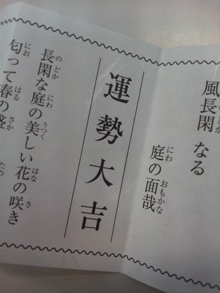 風長閑なる
庭の面哉
運勢大吉
長閑な庭の美しい花の咲き
匂って春の盛